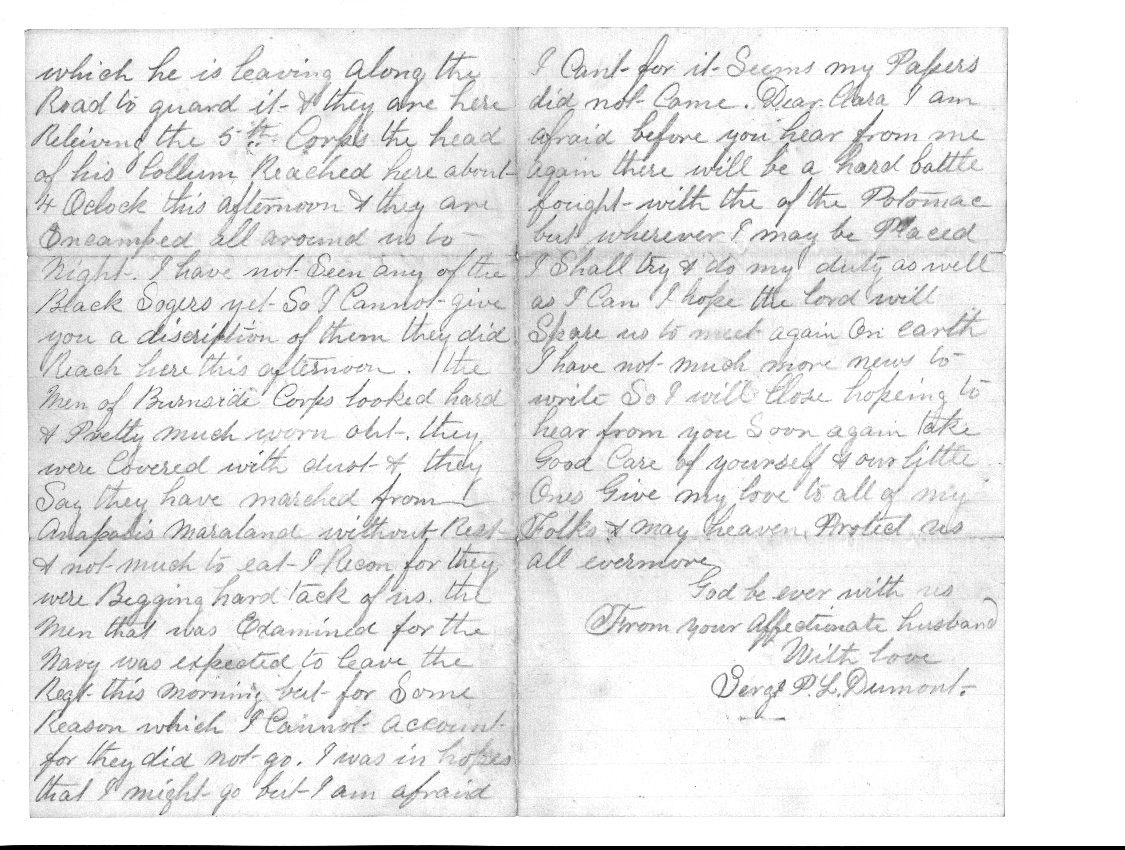 which he is leaving along the
Road to guard it & they are here
Releiving the 5th Corps the head
of his Collum Reached here about
4 Oclock this afternoon & they are
Encamped all around us to
Night. I have not Seen any of the
Black Sogers yet So I Cannot give
you a discription of them they did
Reach here this afternoon. the
Men of Burnside Corps looked hard
& Pretty much worn out. they
were Covered with dust & they
Say they have marched from
Anapolis Maraland without Rest
& not much to eat I Recon for they
were Begging hard tack of us. the
Men that was Examined for the
Navy was expected to leave the
Regt this morning but for Some
Reason which I Cannot account
for they did not go. I was in hopes
that I might go but I am afraid
I Cant for it Seems my Papers
did not Come. Dear Clara I am
afraid before you hear from me
again there will be a hard battle
fought with the of the Potomac
but wherever I may be Placed
I Shall try & do my duty as well
as I Can I hope the lord will
Spare us to meet again On earth
I have not much more news to
write So I will Close hopeing to
hear from you Soon again take
Good Care of yourself & our little
Ones Give my love to all of my
Folks & may heaven Protect us
all evermore
God be ever with us
From your Affectionate husband
With love
Sergt P. L. Dumont.